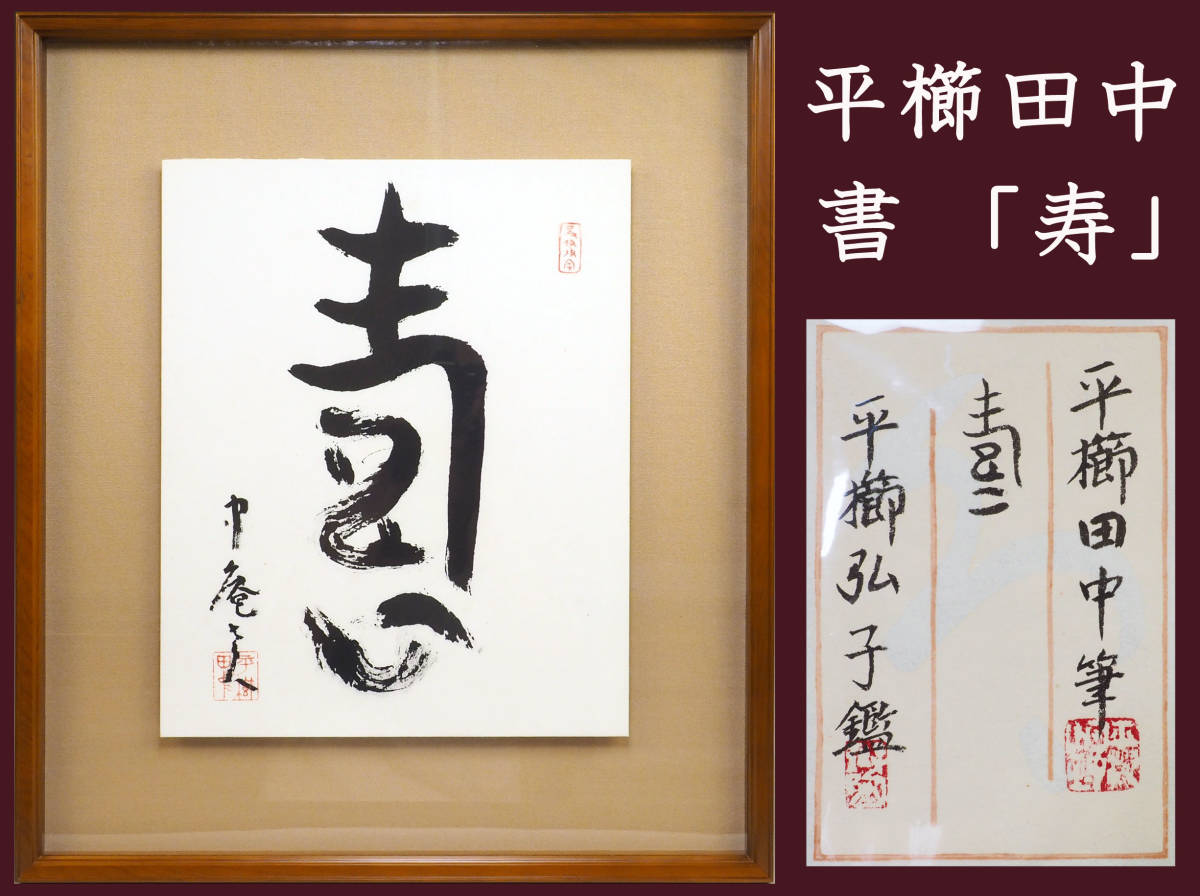 平櫛田中
書「寿」
壽
中庵老人
平櫛田中
平櫛田中筆
壽
平櫛弘子鑑